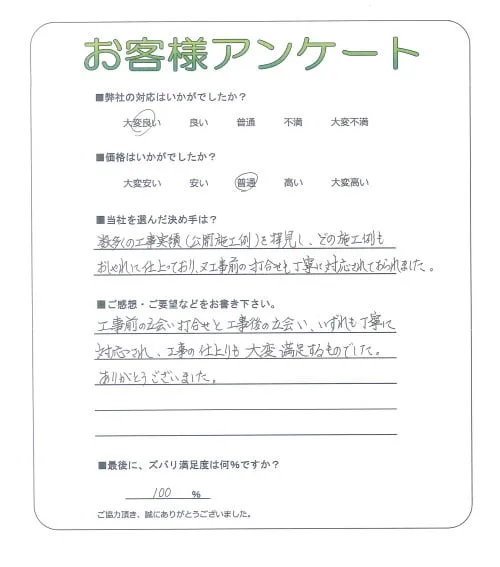 お客様アンケート
■弊社の対応はいかがでしたか?
大変良い 良い 普通 不満 大変不満
■価格はいかがでしたか?
大変安い 安い 普通 高い 大変高い
■当社を選んだ決め手は?
数多くの工事実績(公開施工例)を拝見し、どの施工例も
おしゃれに仕上っており、又工事前の打合せも丁寧に対応されておられました。
■ご感想・ご要望などをお書き下さい。
工事前の立会い打合せと工事後の立会い、いずれも丁寧に
対応され、工事の仕上りも大変満足するものでした。
ありがとうございました。
■最後に、ズバリ満足度は何%ですか?
100 %
ご協力頂き、誠にありがとうございました。